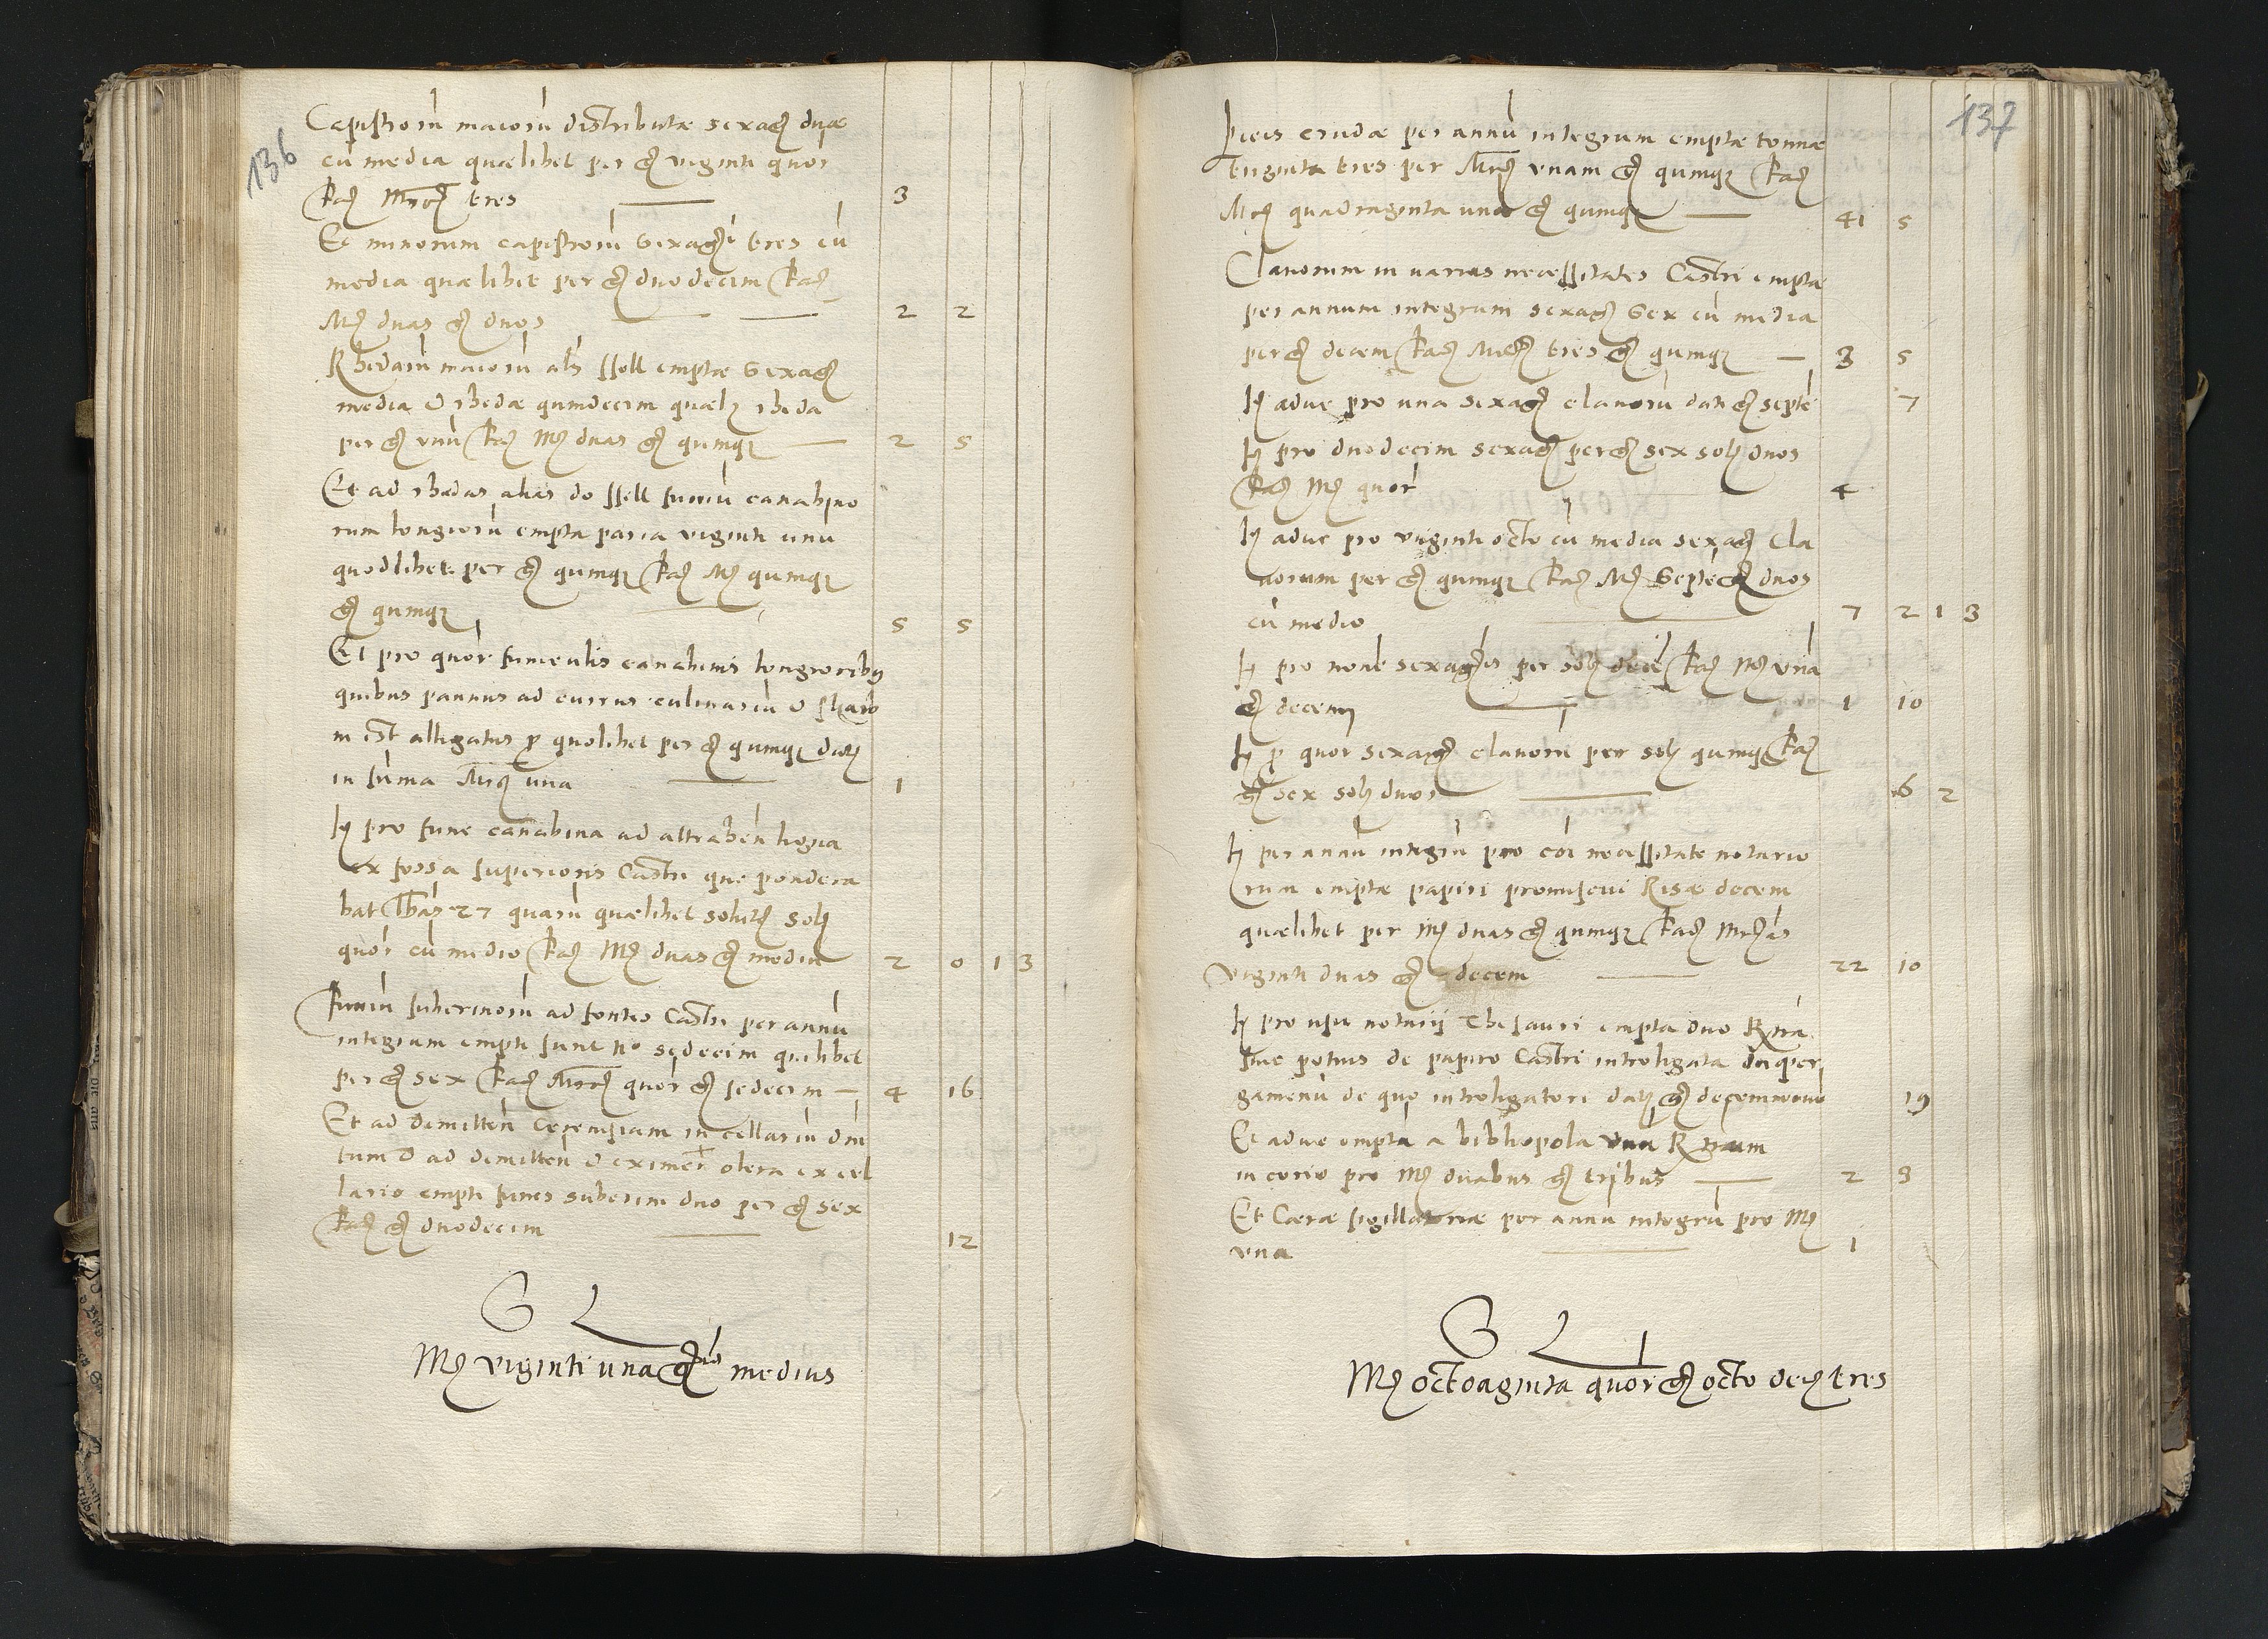 136
Capistrorū maiorū distributæ sexag duæ
cū media quælibet per g viginti quor
fac Mrc tres 3
Et minorum capistrorū Sexagē tres cū
media quælibet per g duodecim fac
Mc duas g duos 2 2
Rhedarū maiorū als emptæ Sexag
media & rhedæ quindecim quælz rheda
per g unū fac Mc duas g quinqz 2 5
Et ad rhedas alias do funiū canabino
rum longiorū empta paria viginti unū
quodlibet per g quinqz fac Mc quinqz
g quinqz 5 5
Et pro quor funiculis canabinis longioribus
quibus pannus ad currus culinariū &
est alligatus p quolibet per g quinqz dat
in suma Mrc una 1
It pro fune canabina ad attrahen ligna
ex fossa superioris Castri que pondera
bat lbas 27 quarū quælibet solut sol
quor cū medio fac Mc duas g mediū 2 0 1 3
Funiū suberinorū ad fontes Castri per annū
integrum empti sunt No sedecim quilibet
per g sex fac Mrc quor g sedecim 4 16
Et ad dimitten cereuisiam in cellariū
tum & ad dimitten & eximen olera ex cel
lario empti funes suberini duo per g sex
fac g duodecim 12
Mc viginti una g medius
137
Picis crudæ per annū integrum emptæ tonnæ
triginta tres per Mrc unam g quinqz fac
Mrc quadraginta una g quinqz 41 5
Clauorum in varias necessitates Castri emptæ
per annum integrum sexag Sex cū media
per g decem fac Mrc tres g quinqz 3 5
It aduc pro una sexag clauorū dati g septē 7
It pro duodecim sexag per g sex sol duos
fac Mc quor 4
It aduc pro viginti octo cū media sexag Cla
uorum per g quinqz fac Mc Septē g duos
cū medio 7 2 1 3
It pro nouē sexagis per sol decē fac Mc una
g decem 1 10
It p quor sexag clauorū per sol quinqz fac
g sex sol duos 6 2
It per annū integrū pro cōi necessitate notario
rum emptæ papiri Risæ decem
quælibet per Mc duas g quinqz fac Mrcas
viginti duas g decem 22 10
It pro usu notarij Thesauri empta duo Rra
siue potius de papiro Castri introligata in per
gamenū de quo introligatori dat g decemnouē 19
Et aduc empta a bibliopola una Rrum
in corio pro Mc duabus g tribus 2 3
Et Cæræ sigillatoriæ per annū integrū pro Mc
una 1
Mc octoaginta quor g octo den tres